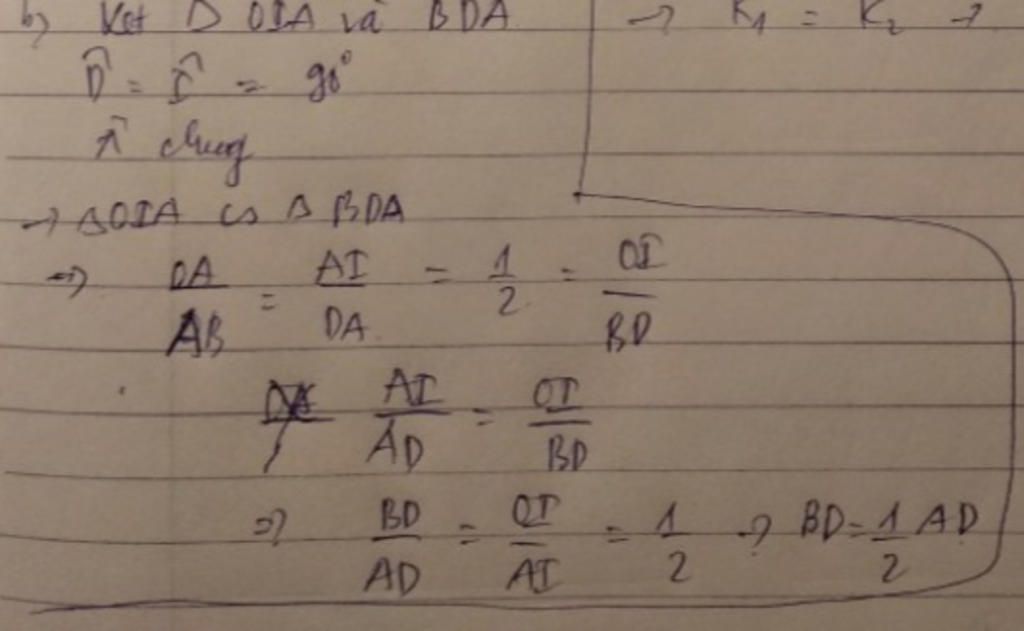 b) Xét Δ OIA và BDA
→ K₁ = K₂ →
D̂ = Î = 90°
Â chung
→ ΔOIA ∽ Δ BDA
=> OA/AB = AI/DA = 1/2 = OI/BD
AI/AD = OI/BD
=> BD/AD = OI/AI = 1/2 → BD = 1/2 AD